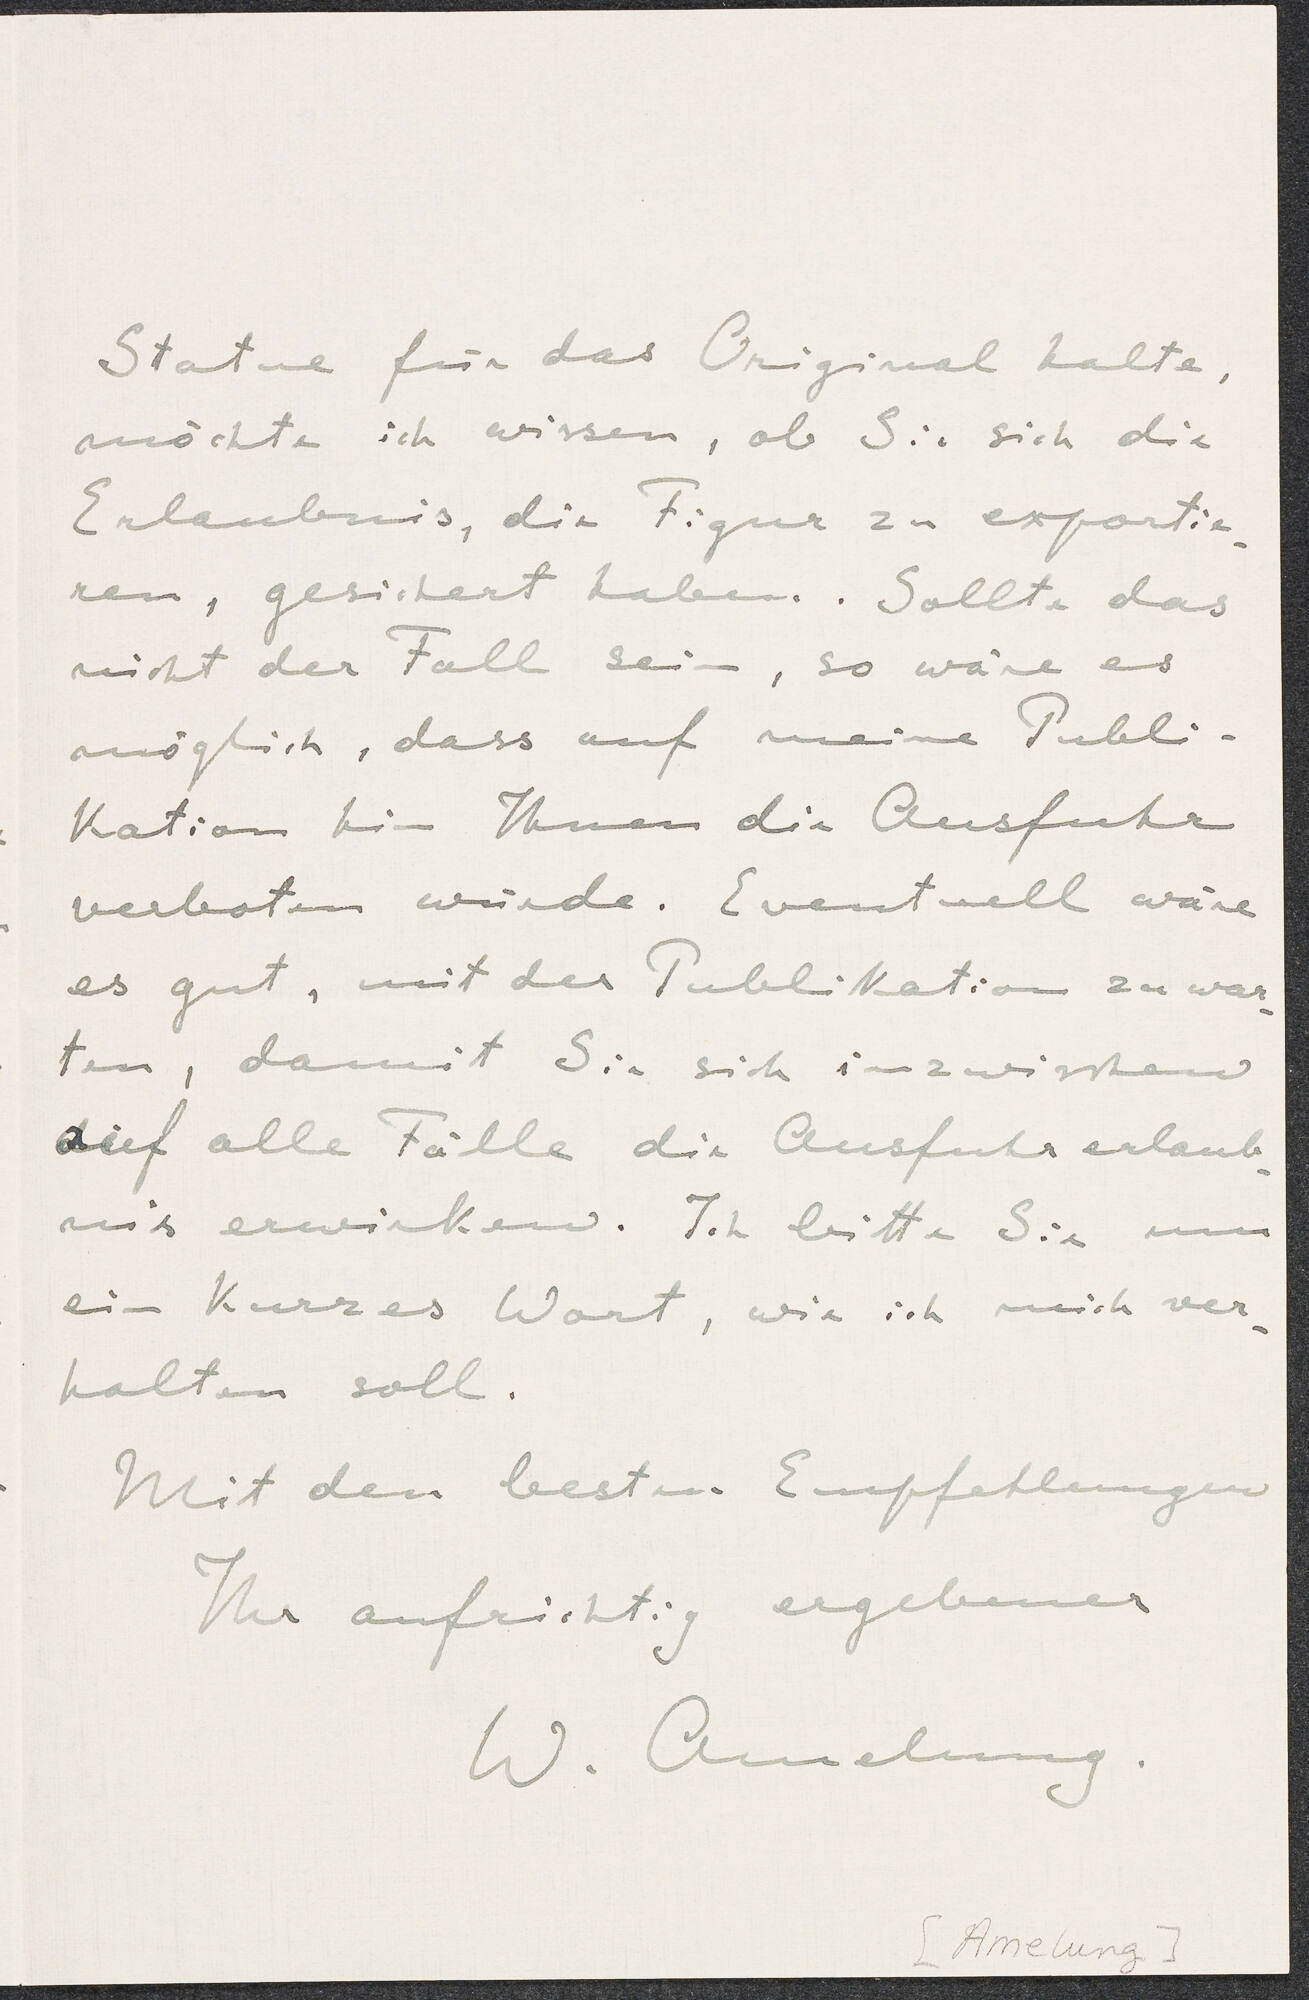 Statue für das Original halte,
möchte ich wissen, ob Sie sich die
Erlaubnis, die Figur zu exportie-
ren, gesichert haben. . Sollte das
nicht der Fall sein, so wäre es
möglich, dass auf meine Publi-
kation hin Ihnen die Ausfuhr
verboten würde. Eventuell wäre
es gut, mit der Publikation zu war-
ten, damit Sie sich inzwischen
auf alle Fälle die Ausfuhrerlaub-
nis erwirken. Ich bitte Sie um
ein kurzes Wort, wie ich mich ver-
halten soll.
Mit den besten Empfehlungen
Ihr aufrichtig ergebener
W. Amelung.
[Amelung]